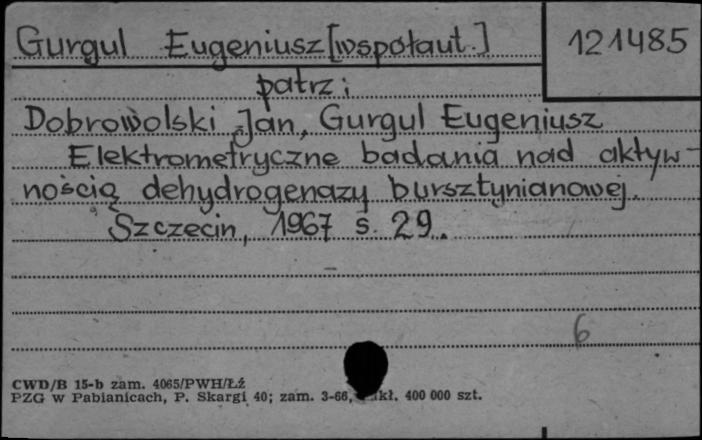 Gurgul Eugeniusz [współaut.]
121485
patrz:
Dobrowolski Jan, Gurgul Eugeniusz
Elektrometryczne badania nad aktyw-
nością dehydrogenazy bursztynianowej.
Szczecin, 1967 s. 29.
6
CWD/B 15-b zam. 4065/PWH/Łź
PZG w Pabianicach, P. Skargi 40; zam. 3-66, 400 000 szt.